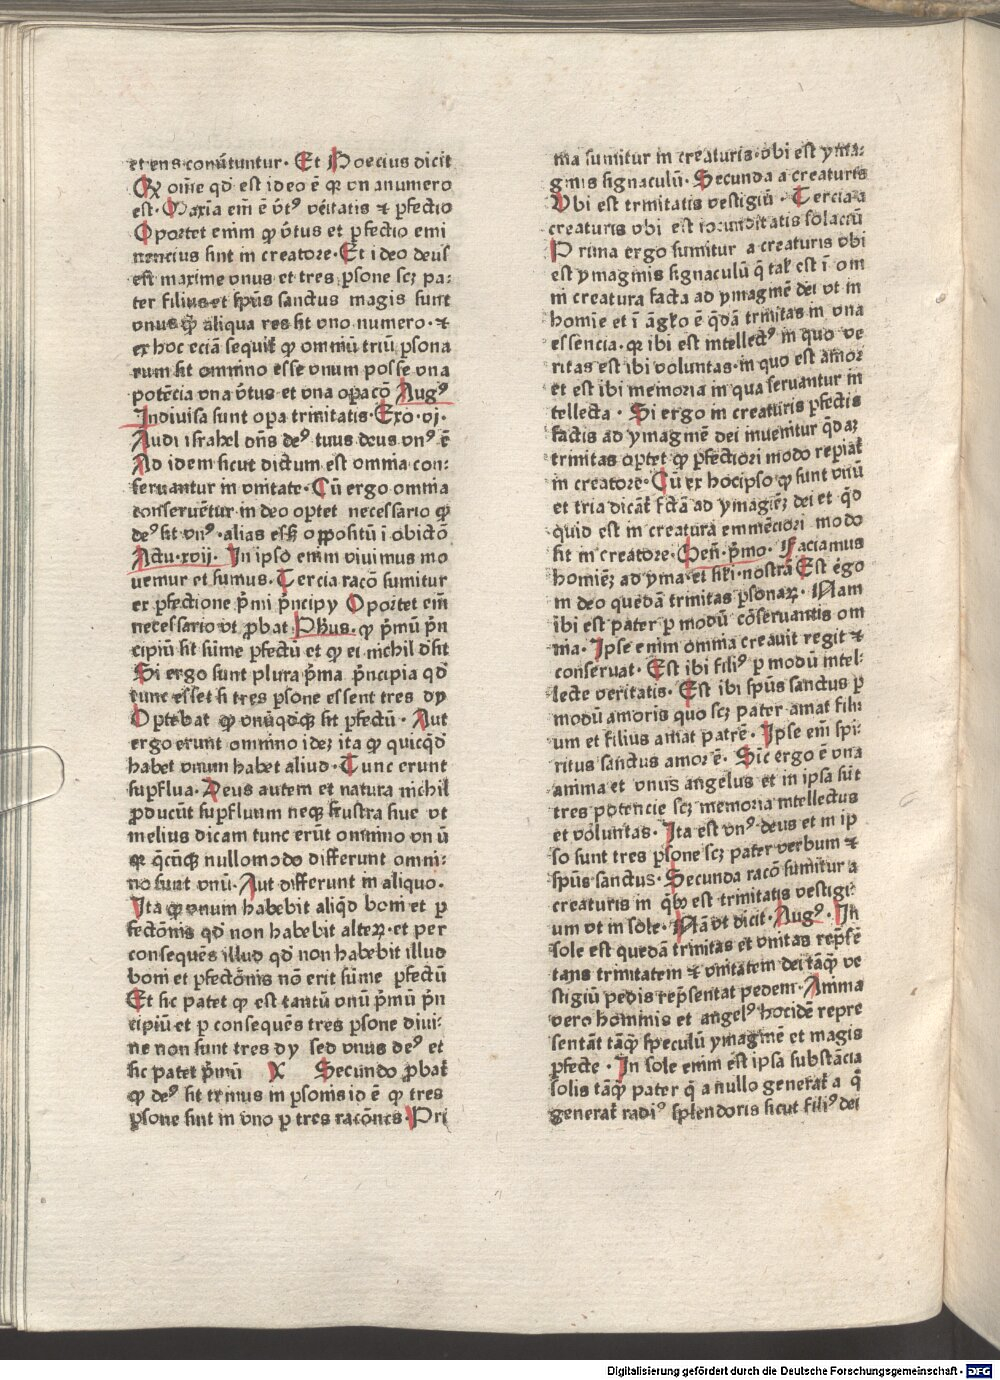 et ens conũtuntur. Et Boecius dicit
Qꝛ om̄e qd̓ est ideo ē qꝛ vn anumero
est. Maxīa em̄ ē v̓tꝰ ve̓itatis ⁊ ꝑfectio
Oportet enim ꝙ v̓tus et ꝑfectio emi
nencius sint in creatore. Et ideo deus
est maxime vnus et tres ꝑsone scꝫ pa:
ter filius et sp̄us sanctus magis sunt
vnus q̄ꝫ aliqua res sit vno numero. ⁊
ex hoc eciā sequit̉ ꝙ omniū triū ꝑsona
rum sit omnino esse vnum posse vna
potēcia vna v̓tus et vna oꝑacō Augꝰ
Indiuisa sunt oꝑa trinitatis. Exo. vi.
Audi israhel dn̄s deꝰ tuus deus vnꝰ ē
Ad idem sicut dictum est omnia con:
seruantur in vnitate. Cū ergo omnia
conseruētur in deo oꝑtet necessario ꝙ
deꝰ sit vnꝰ. alias esset oꝑpositū ī obictō
Actu. xvij. In ipso enim viuimus mo
uemur et sumus. Tercia racō sumitur
ex ꝑfectione p̄mi p̄ncipy Oportet em̄
necessario vt ꝓbat Ph̄us. ꝙ p̄mū p̄n
cipiū sit sūme ꝑfectū et ꝙ ei nichil d̓sit
Si ergo sunt plura p̄ma p̄ncipia qd̓
tunc esset si tres ꝑsone essent tres dy
Oꝑtebat ꝙ vnūqd̓qꝫ sit ꝑfectū. Aut
ergo erunt omnino ideꝫ ita ꝙ quicqd̓
habet vnum habet aliud. Tunc erunt
suꝑflua. Deus autem et natura nichil
ꝓducūt suꝑfluum neqꝫ frustra siue vt
melius dicam tunc erūt omnino vn ū
qꝛ q̄cūqꝫ nullomodo differunt omni:
no sunt vnū. Aut differunt in aliquo.
Ita ꝙ vnum habebit aliqd̓ boni et ꝑ
fectōnis qd̓ non habebit alteꝝ. et per
consequēs illud qd̓ non habebit illud
boni et ꝑfectōnis nō erit sūme ꝑfectū
Et sic patet ꝙ est tantū vnū p̄mū p̄n
cipiū et ꝑ consequēs tres ꝑsone diui:
ne non sunt tres dy sed vnus deꝰ et
sic patet p̄mū X Secundo ꝓbat̉
ꝙ deꝰ sit trinus in ꝑsonis id ē ꝙ tres
ꝑsone sint in vno ꝑ tres racōnes. Pri
ma sumitur in creaturis. vbi est yma:
ginis signaculū. Secunda a creaturis
Vbi est trinitatis vestigiū. Tercia a
creaturis vbi est iocunditatis solaciū
Prima ergo sumitur a creaturis vbi
est ymaginis signaculū q̄ tal̉ est ī om
ni creatura facta ad ymaginē dei vt in
homīe et ī āgl̓o ē q̄dā trinitas in vna
essencia. qꝛ ibi est intellectꝰ in quo ve
ritas est ibi voluntas. in quo est amor
et est ibi memoria in qua seruantur in
tellecta. Si ergo in creaturis ꝑfectis
factis ad ymaginē dei inuenitur q̄daꝫ
trinitas oꝑtet ꝙ ꝑfectiori modo reꝑiat̉
in creatore. Cū ex hocipso ꝙ sunt vnū
et tria dicāt̉ fctā ad ymagineꝫ dei et qd̓
quid est in creatura eminēciori modo
sit in creatore. Gen̄. p̄mo. Faciamus
homieꝫ ad yma. et sil̓i. nostrā Est e̓go
in deo quedā trinitas ꝑsonaꝝ. Nam
ibi est pater ꝑ modū cōseruantis om
nia. Ipse enim omnia creauit regit ⁊
conseruat. Est ibi filiꝰ ꝑ modū intel:
lecte veritatis. Est ibi sp̄us sanctus ꝑ
modū amoris quo scꝫ pater amat fili
um et filius amat patrē. Ipse em̄ spi:
ritus sanctus amor ē. Sic ergo ē vna
anima et vnus angelus et in ipsa sūt
tres potencie scꝫ memoria intellectus
et voluntas. Ita est vnꝰ deus et in ip
so sunt tres ꝑsone scꝫ pater verbum ⁊
sp̄us sanctus. Secunda racō sumitur a
creaturis in q̓bꝫ est trinitatis vestigi:
um vt in sole. Nā vt dicit Augꝰ. In
sole est quedā trinitas et vnitas rep̄sē
tans trinitatem ⁊ vnitatem dei tāq̄ꝫ ve
stigiū pedis rep̄sentat pedem. Anima
vero hominis et angelꝰ hocidē repre
sentāt tāq̄ꝫ speculū ymaginē et magis
ꝑfecte. In sole enim est ipsa substācia
solis tāq̄ꝫ pater q̄ a nullo generat̉ a q̄
generat̉ radiꝰ splendoris sicut filiꝰ dei
Digitalisierung gefördert durch die Deutsche Forschungsgemeinschaft - DFG